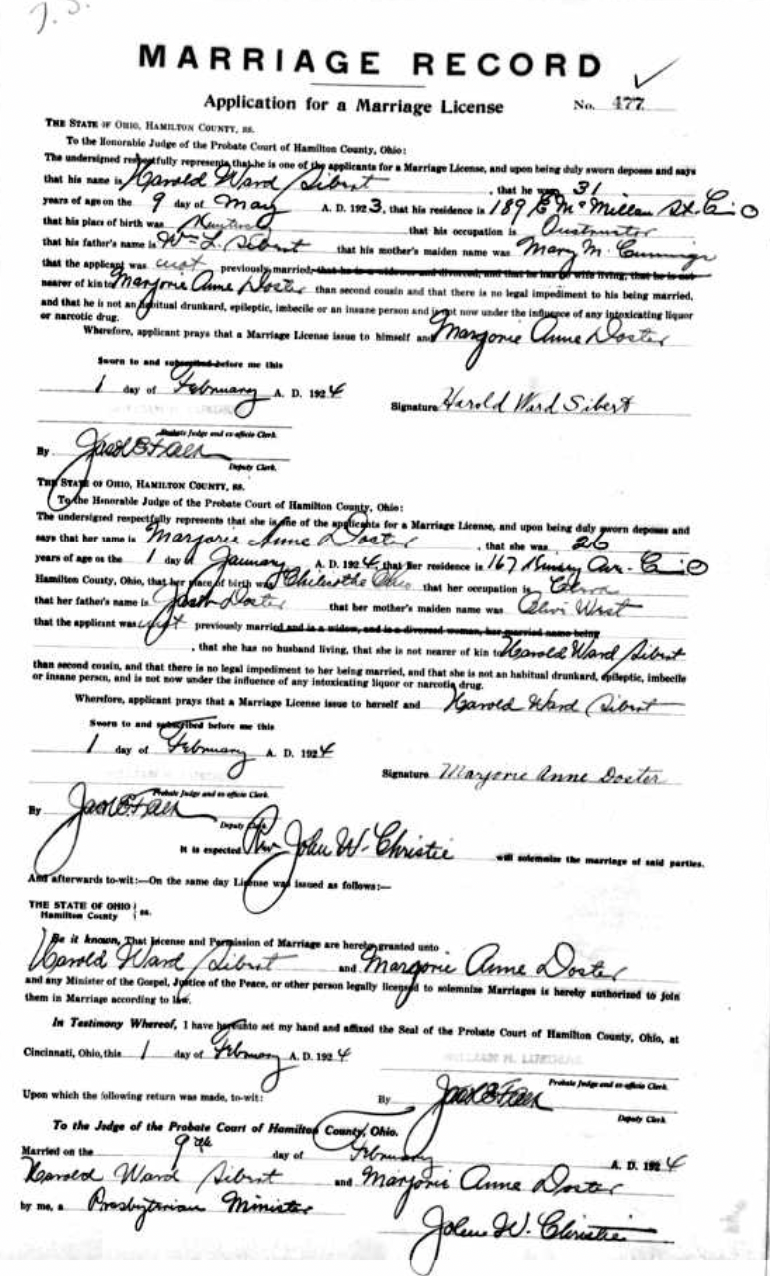 MARRIAGE RECORD
Application for a Marriage License No. 477
THE STATE OF OHIO, HAMILTON COUNTY, ss.
To the Honorable Judge of the Probate Court of Hamilton County, Ohio:
The undersigned respectfully represents that he is one of the applicants for a Marriage License, and upon being duly sworn deposes and says
that his name is Harold Ward Sibert, that he was 31
years of age on the 9 day of May A. D. 1923, that his residence is 189 E McMillan St. Cin O
that his place of birth was that his occupation is
that his father's name is Wm L. Sibert that his mother's maiden name was Mary M. Cummings
that the applicant was not previously married, that he is a widower and divorced, and that he has no wife living, that he is not
nearer of kin to Marjorie Anne Doster than second cousin and that there is no legal impediment to his being married,
and that he is not an habitual drunkard, epileptic, imbecile or an insane person and is not now under the influence of any intoxicating liquor
or narcotic drug.
Wherefore, applicant prays that a Marriage License issue to himself and Marjorie Anne Doster
Sworn to and subscribed before me this
1 day of February A. D. 1924
Signature Harold Ward Sibert
Probate Judge and ex-officio Clerk.
By
Deputy Clerk.
THE STATE OF OHIO, HAMILTON COUNTY, ss.
To the Honorable Judge of the Probate Court of Hamilton County, Ohio:
The undersigned respectfully represents that she is one of the applicants for a Marriage License, and upon being duly sworn deposes and
says that her name is Marjorie Anne Doster, that she was 26
years of age on the 1 day of January A. D. 1924, that her residence is 167 Ave. Cin O
Hamilton County, Ohio, that her place of birth was Chilicothe Ohio that her occupation is
that her father's name is Doster that her mother's maiden name was West
that the applicant was not previously married and is a widow, and is a divorced woman, her married name being
, that she has no husband living, that she is not nearer of kin to Harold Ward Sibert
than second cousin, and that there is no legal impediment to her being married, and that she is not an habitual drunkard, epileptic, imbecile
or insane person, and is not now under the influence of any intoxicating liquor or narcotic drug.
Wherefore, applicant prays that a Marriage License issue to herself and Harold Ward Sibert
Sworn to and subscribed before me this
1 day of February A. D. 1924
Signature Marjorie Anne Doster
Probate Judge and ex officio Clerk.
By
Deputy Clerk.
It is expected Rev John W. Christie will solemnize the marriage of said parties.
And afterwards to-wit:—On the same day License was issued as follows:—
THE STATE OF OHIO } ss.
Hamilton County
Be it known, That License and Permission of Marriage are hereby granted unto
Harold Ward Sibert and Marjorie Anne Doster
and any Minister of the Gospel, Justice of the Peace, or other person legally licensed to solemnize Marriages is hereby authorized to join
them in Marriage according to law.
In Testimony Whereof, I have hereunto set my hand and affixed the Seal of the Probate Court of Hamilton County, Ohio, at
Cincinnati, Ohio, this 1 day of February A. D. 1924
Probate Judge and ex officio Clerk.
Upon which the following return was made, to-wit: By
Deputy Clerk.
To the Judge of the Probate Court of Hamilton County, Ohio.
Married on the 9th day of February A. D. 1924
Harold Ward Sibert and Marjorie Anne Doster
by me, a Presbyterian Minister
John W. Christie